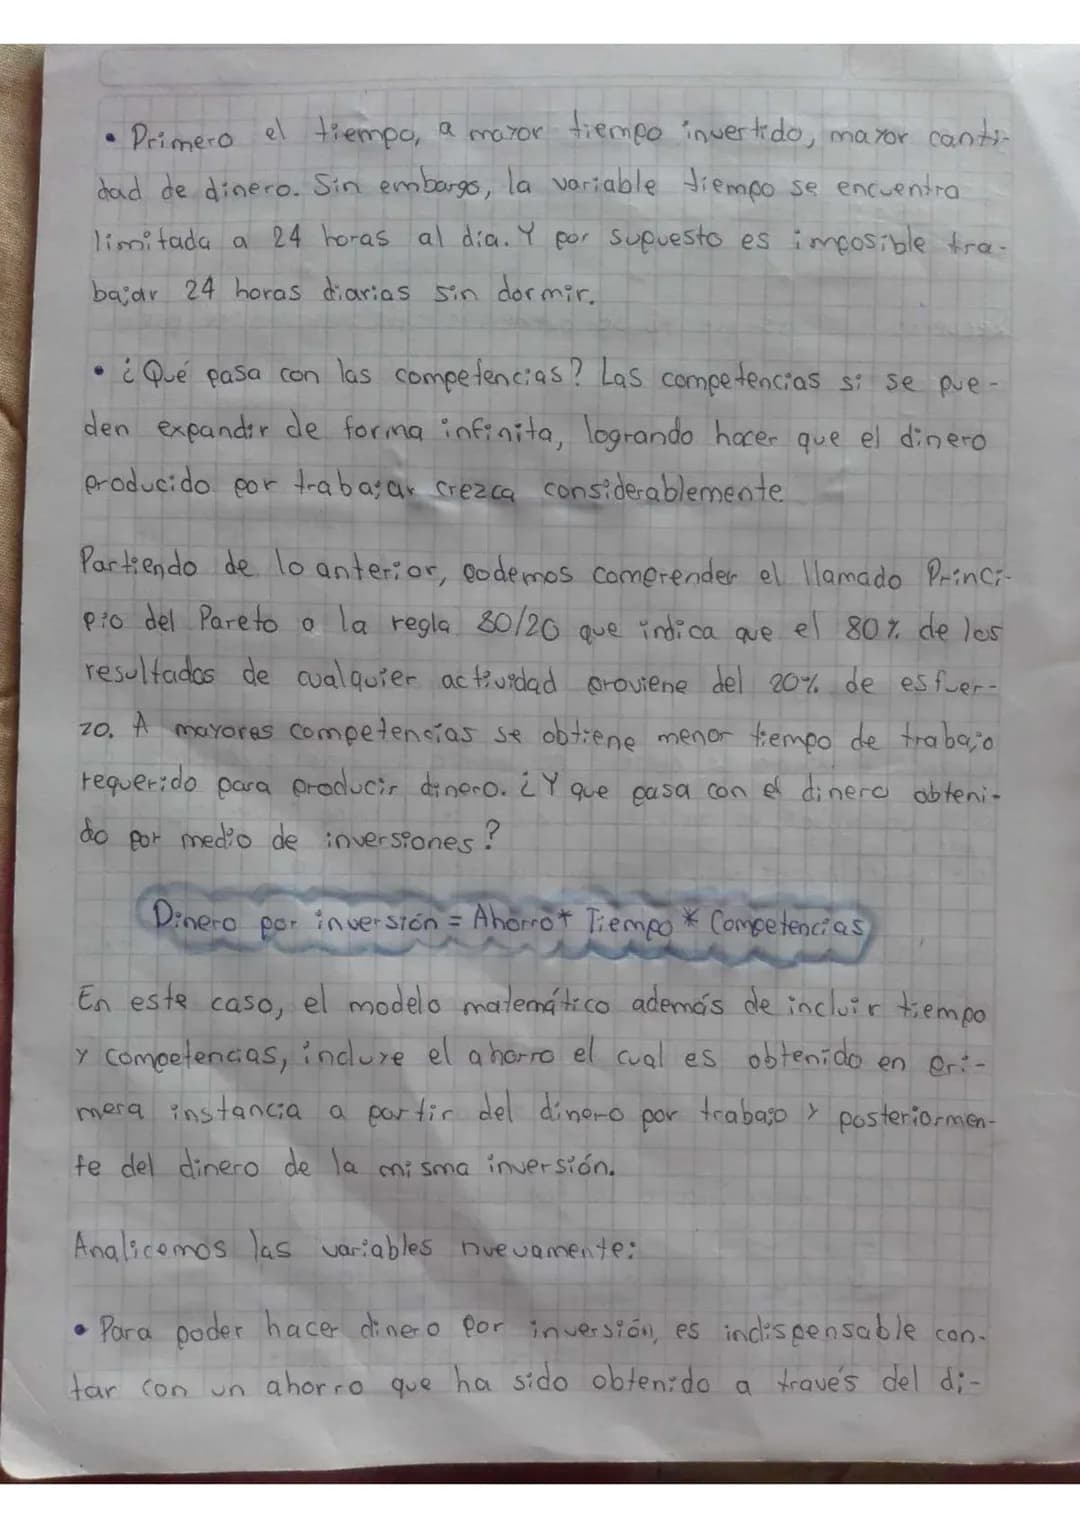 • Primero el tiempo, a mayor tiempo invertido, mayor canti-
dad de dinero. Sin embargo, la variable tiempo se encuentra
limitada a 24 horas al día. Y por supuesto es imposible tra-
bajar 24 horas diarias sin dormir.
• ¿Qué pasa con las competencias? Las competencias si se pue-
den expandir de forma infinita, logrando hacer que el dinero
producido por trabajar crezca considerablemente
Partiendo de lo anterior, podemos comprender el llamado Princi-
pio del Pareto o la regla 80/20 que indica que el 80% de los
resultados de cualquier actividad proviene del 20% de esfuer-
zo. A mayores competencias se obtiene menor tiempo de trabajo
requerido para producir dinero. ¿Y que pasa con el dinero obteni-
do por medio de inversiones?
Dinero por inversión = Ahorro* Tiempo * Competencias
En este caso, el modelo matemático además de incluir tiempo
y competencias, incluye el ahorro el cual es obtenido en pri-
mera instancia a partir del dinero por trabajo y posteriormen-
te del dinero de la misma inversión.
Analicemos las variables nuevamente:
• Para poder hacer dinero por inversión, es indispensable con-
tar con un ahorro que ha sido obtenido a través del di-